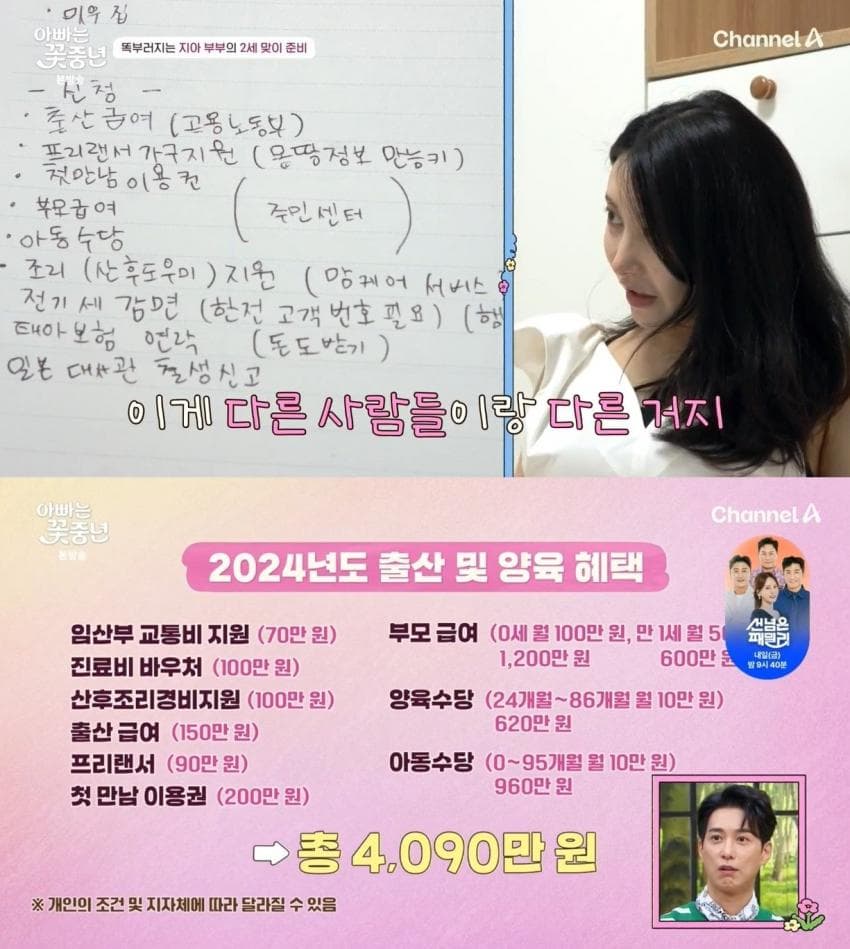 · 미우 집
아빠는
꽃중년
본방송
똑부러지는 지아 부부의 2세 맞이 준비
Channel A
- 신청 -
· 출산급여 (고용노동부)
· 프리랜서가구지원 (몽땅정보 만능키)
· 첫만남이용권
· 부모급여
(주민센터)
· 아동수당
- 조리 (산후도우미) 지원 (맘케어 서비스
전기세 감면 (한전 고객번호 필요) (행
태아보험 연락 (돈도받기)
일본 대사관 출생신고
이게 다른 사람들이랑 다른 거지
아빠는
꽃중년
본방송
Channel A
2024년도 출산 및 양육 혜택
임산부 교통비 지원 (70만 원)
진료비 바우처 (100만 원)
산후조리경비지원 (100만 원)
출산 급여 (150만 원)
프리랜서 (90만 원)
첫 만남 이용권 (200만 원)
부모 급여 (0세 월 100만 원, 만 1세 월 5
1,200만 원 600만 원
양육수당 (24개월~86개월 월 10만 원)
620만 원
아동수당 (0~95개월 월 10만 원)
960만 원
선넘은
패밀리
내일(금)
밤 9시 40분
총 4,090만 원
※ 개인의 조건 및 지자체에 따라 달라질 수 있음